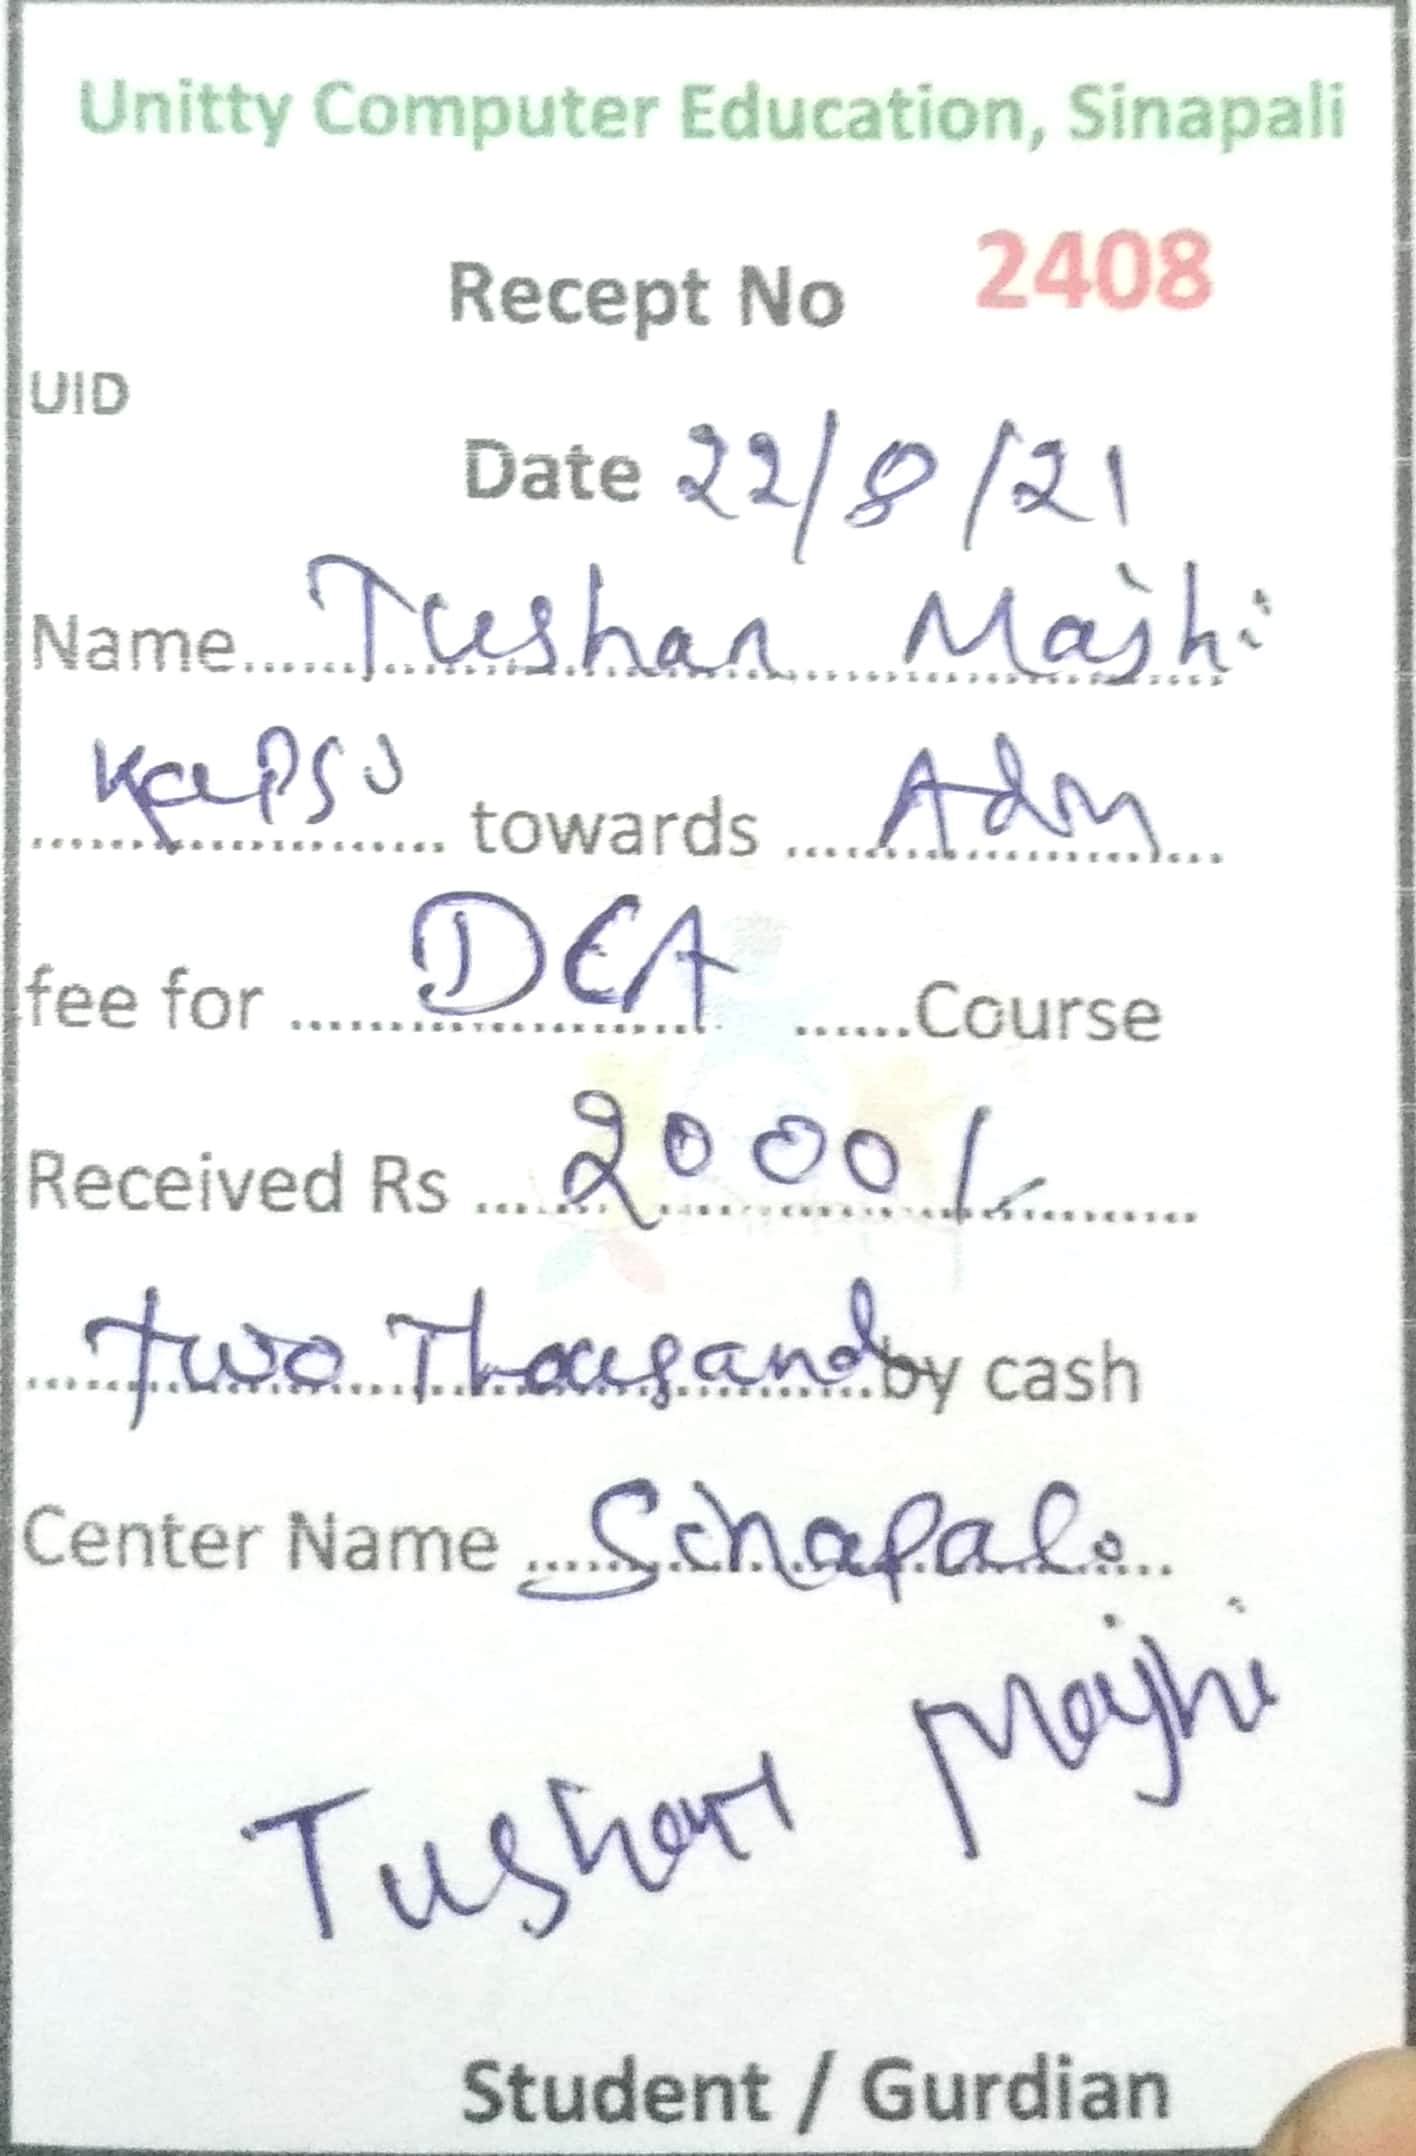 Unitty Computer Education, Sinapali
Recept No 2408
UID
Date 22/8/21
Name Tushar Majhi
towards Adm
fee for DCA Course
Received Rs 2000/-
Two Thousand by cash
Center Name Sinapali
Tushar Majhi
Student / Gurdian